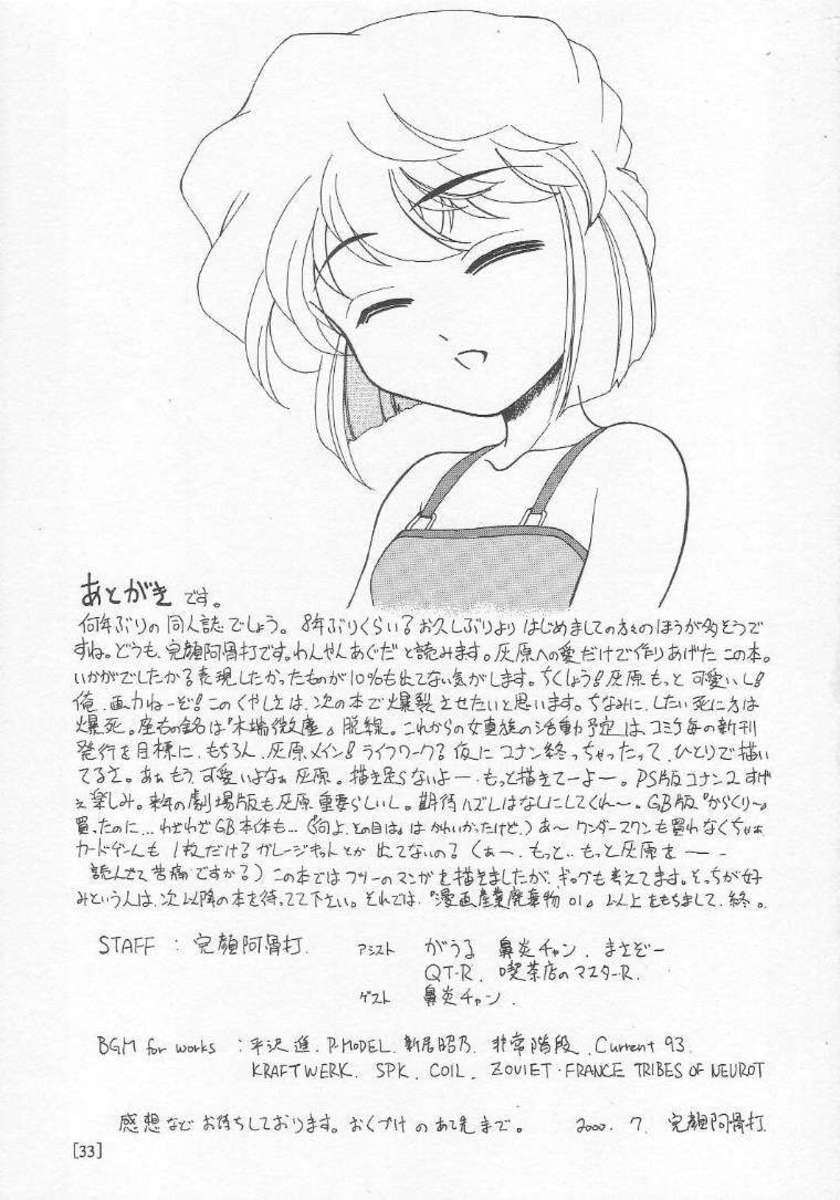 あとがき です。
何年ぶりの同人誌でしょう。8年ぶりくらい?お久しぶりより はじめましての方々のほうが多そうで
すね。どうも、完顔阿骨打です。わんやんあぐだ と読みます。灰原への愛だけで作りあげた この本。
いかがでしたか?表現したかったものが10%も出てない気がします。ちくしょう!灰原もっと可愛いし!
俺、画力ねーぞ!このくやしさは、次の本で爆裂させたいと思います。ちなみに、したい死に方は
爆死。座右の銘は『木端微塵』脱線。これからの女直族の活動予定は、コミケ毎の新刊
発行を目標に、もちろん、灰原メイン!ライフワーク?仮にコナン終っちゃったって、ひとりで描い
てるさ。あぁもう、可愛いよなぁ灰原。描き足らないよー、もっと描きてーよー。PS版コナン2 すげ
ぇ楽しみ。来年の劇場版も灰原重要らしいし。期待ハズしはなしにしてくれ〜。GB版『からくり〜』
買ったのに…わざわざGB本体も…(『何よ、その目は』はかわいかったけど。)あ〜ワンダースワンも買わなくちゃぁ
カードゲームも1枚だけ?ガレージキットとか 出てないの?くぁー、もっと、もっと灰原をーー
(読んでて苦痛ですか?)この本ではフツーのマンガを描きましたが、ギャグも考えてます。そっちが好
みという人は、次以降の本を待ってて下さい。それでは、『漫画産業廃棄物01』以上をもちまして、終。
STAFF : 完顔阿骨打. アシスト がうる 鼻炎チャン. まさどー
QT-R. 喫茶店のマスターR.
ゲスト 鼻炎チャン.
BGM for works : 平沢進. P-MODEL. 新居昭乃. 非常階段. Current 93.
KRAFTWERK. SPK. COIL. ZOVIET・FRANCE TRIBES OF NEUROT
感想など お待ちしております。おくづけ のあて先まで。 2000. 7. 完顔阿骨打.
[33]